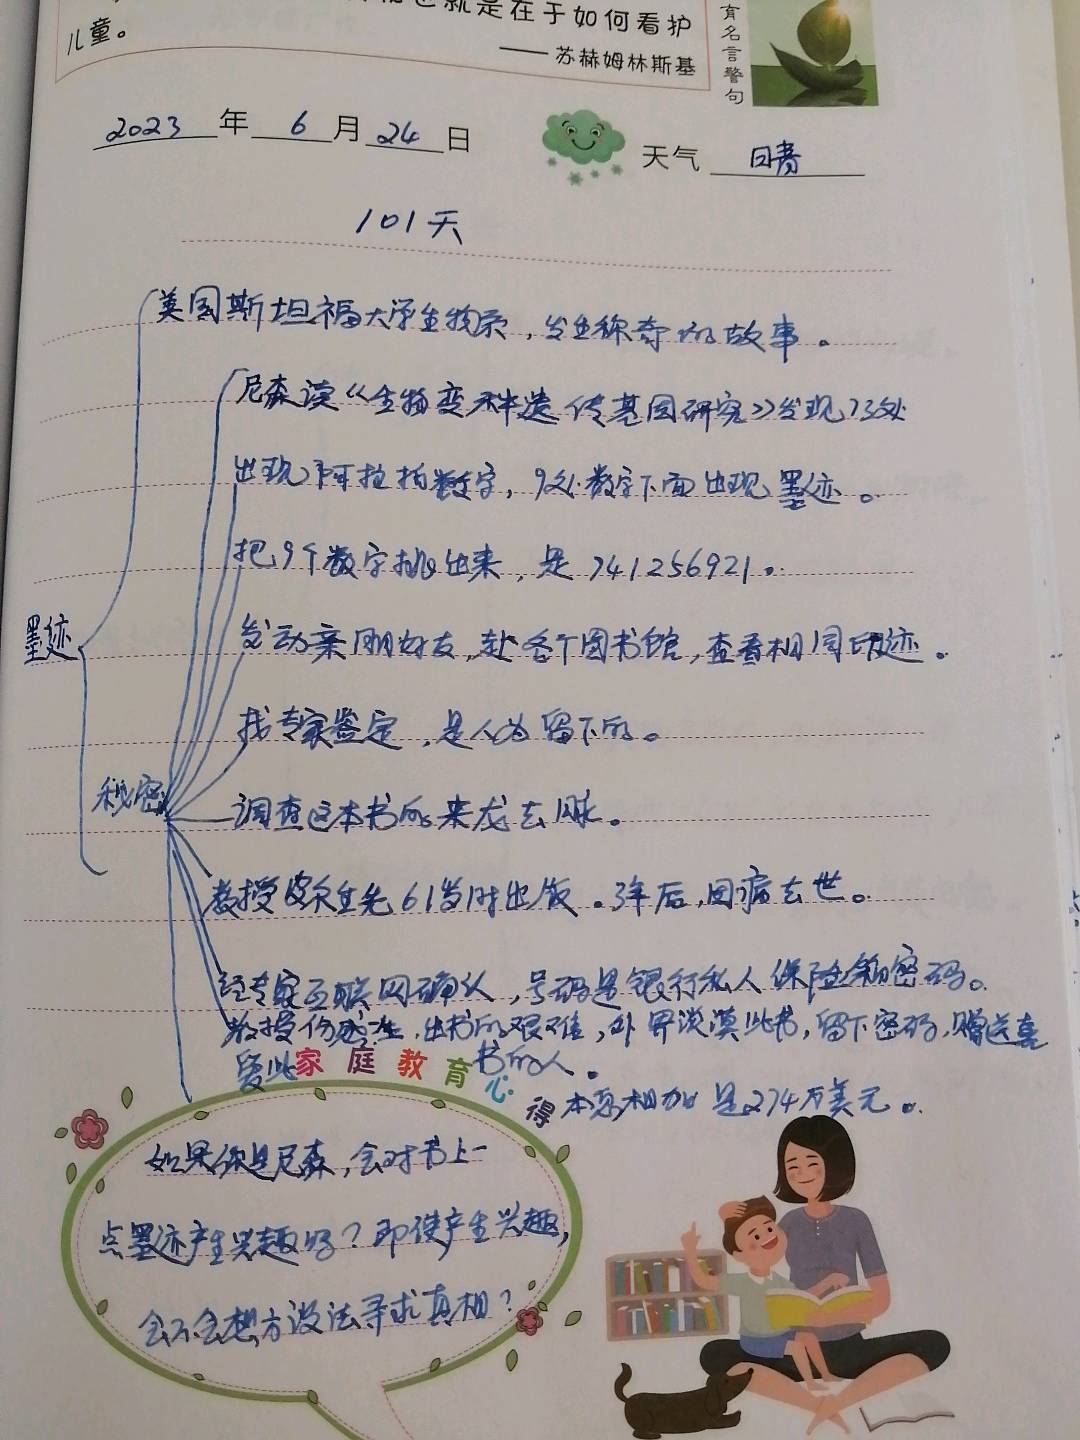 就是在于如何看护
儿童。
——苏赫姆林斯基
育名言警句
2023年6月24日
天气 晴
101天
美国斯坦福大学生物系，发生称奇的故事。
尼森读《生物变种遗传基因研究》发现73处
出现阿拉伯数字，9处数字下面出现墨迹。
把9个数字挑出来，是741256921。
发动亲朋好友，赴各个图书馆，查看相同印迹。
墨迹
找专家鉴定，是人为留下的。
秘密
调查这本书的来龙去脉。
教授皮尔生先61岁时出版。3年后，因病去世。
经专家互联网确认，号码是银行私人保险箱密码。
教授伤感一生，出书的艰难，外界淡漠此书，留下密码，赠送喜
爱此书的人。
家庭教育心得
本息相加是274万美元。
如果你是尼森，会对书上一
点墨迹产生兴趣吗？即使产生兴趣，
会不会想方设法寻求真相？